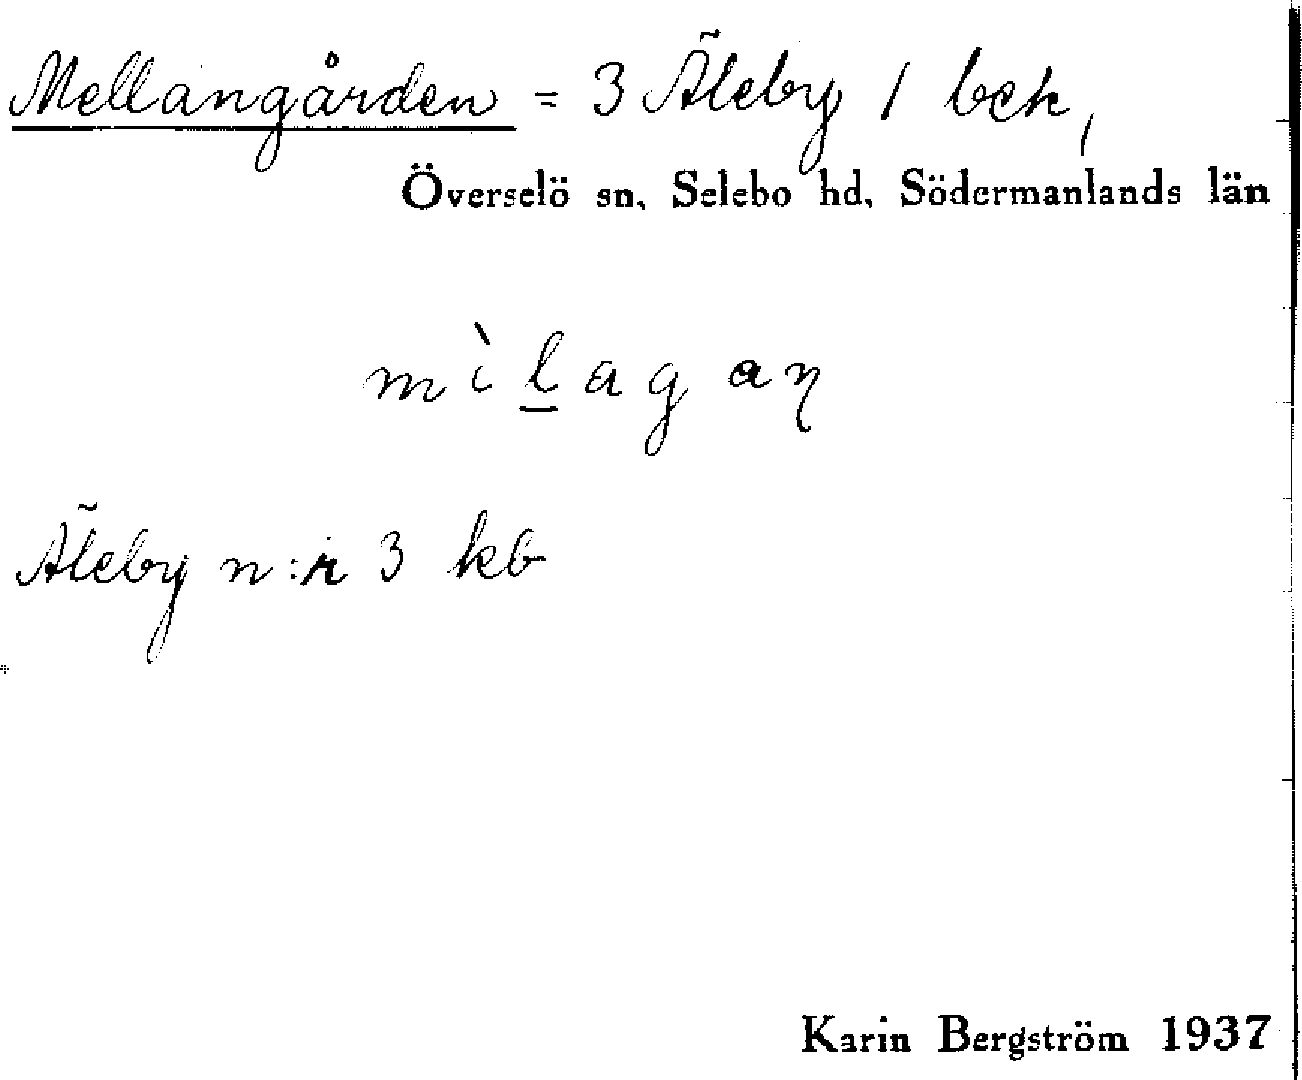 Mellangården = 3 Äleby / bek,
Överselö sn, Selebo hd, Södermanlands län
m ì l a g a ŋ
Äleby n:r 3 kb
Karin Bergström 1937